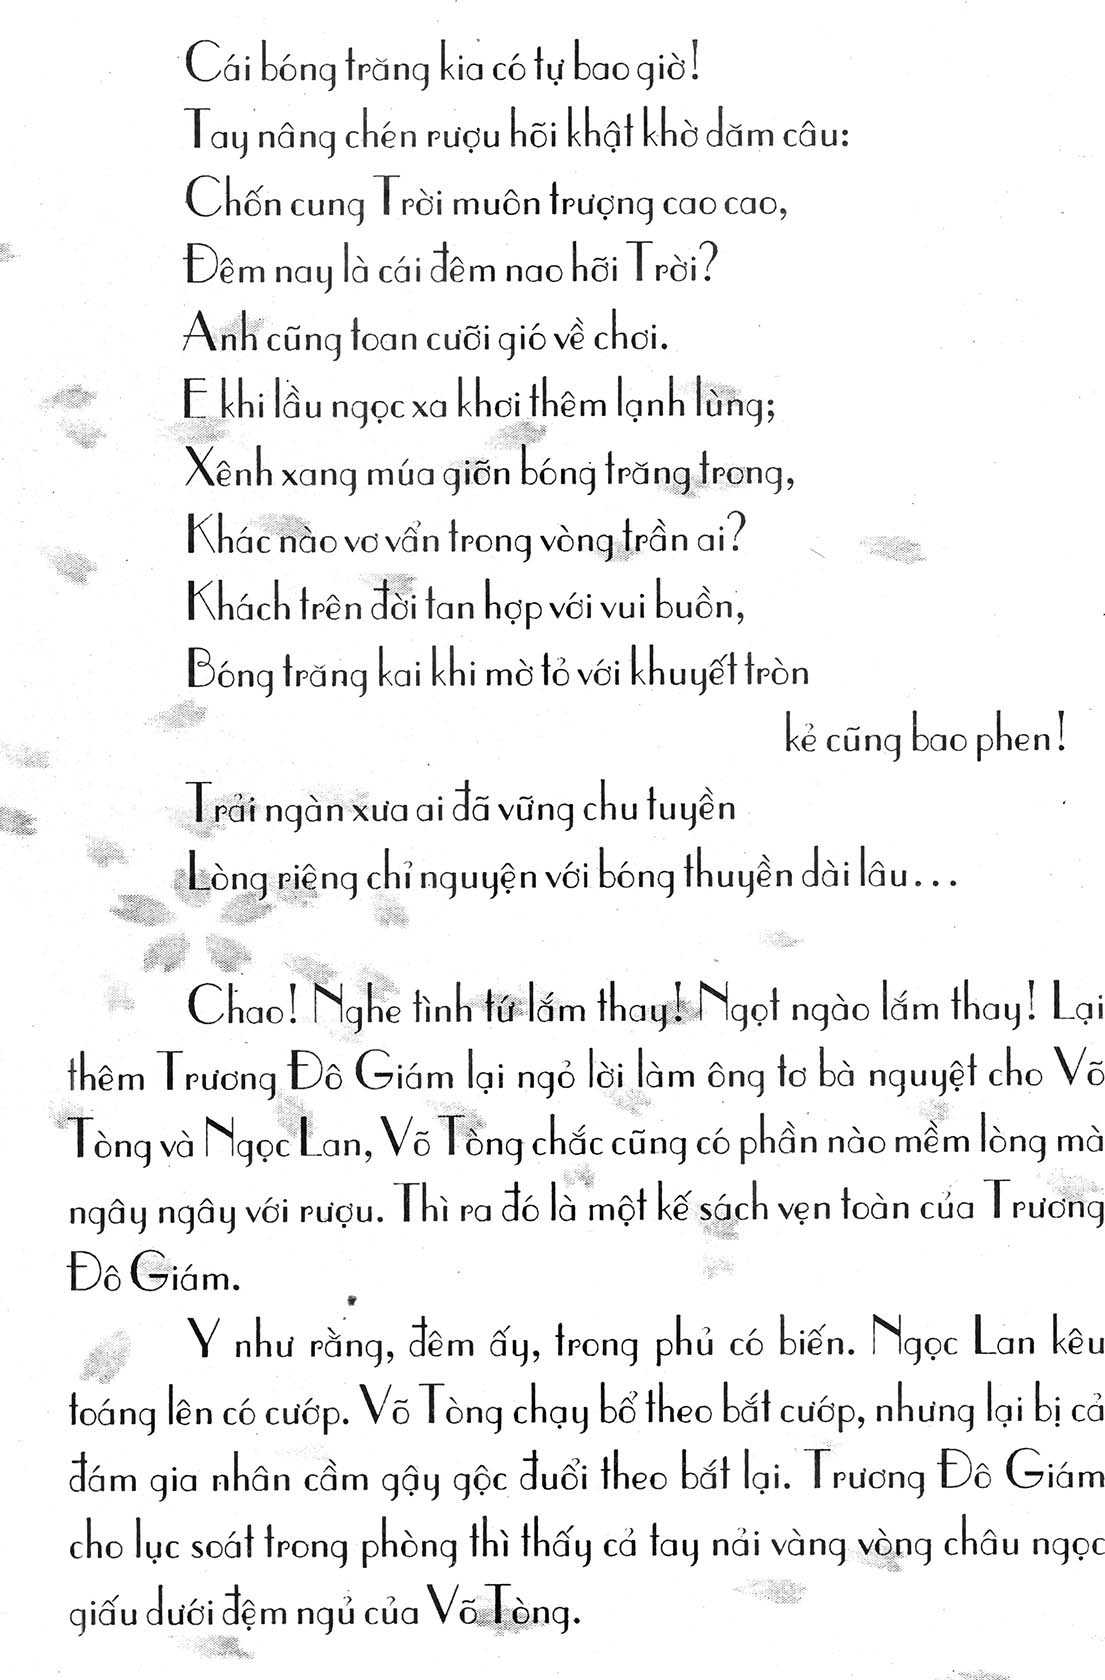 Cái bóng trăng kia có tự bao giờ!
Tay nâng chén rượu hỏi khật khờ dăm câu:
Chốn cung Trời muôn trượng cao cao,
Đêm nay là cái đêm nao hỡi Trời?
Anh cũng toan cưỡi gió về chơi.
E khi lầu ngọc xa khơi thêm lạnh lùng;
Xênh xang múa giỡn bóng trăng trong,
Khác nào vơ vẩn trong vòng trần ai?
Khách trên đời tan hợp với vui buồn,
Bóng trăng kai khi mờ tỏ với khuyết tròn
kẻ cũng bao phen!
Trải ngàn xưa ai đã vững chu tuyền
Lòng riêng chỉ nguyện với bóng thuyền dài lâu...
Chao! Nghe tình tứ lắm thay! Ngọt ngào lắm thay! Lại
thêm Trương Đô Giám lại ngỏ lời làm ông tơ bà nguyệt cho Võ
Tòng và Ngọc Lan, Võ Tòng chắc cũng có phần nào mềm lòng mà
ngây ngây với rượu. Thì ra đó là một kế sách vẹn toàn của Trương
Đô Giám.
Y như rằng, đêm ấy, trong phủ có biến. Ngọc Lan kêu
toáng lên có cướp. Võ Tòng chạy bổ theo bắt cướp, nhưng lại bị cả
đám gia nhân cầm gậy gộc đuổi theo bắt lại. Trương Đô Giám
cho lục soát trong phòng thì thấy cả tay nải vàng vòng châu ngọc
giấu dưới đệm ngủ của Võ Tòng.